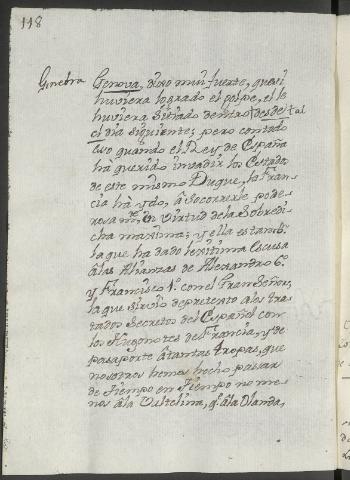 118
Ginebra
Genova, dixo mui fuerte, que si
huviera logrado el golpe, el le
huviera sitiado dentro desde tal
el dia siguiente; pero con todo
eso quando el Rey de España
hà querido invadir los Estados
de este mismo Duque, la Fran-
cia hà ydo, à Socorrerle pode-
rosamte. en virtud de la Sobredi-
cha maxima; y ella es tambn.
la que ha dado lexitima escusa
à las Alianzas de Alexandro 6º.
y Francisco 1º. con el Gran Señor;
la que sirviò de pretexto a los tra-
tados Secretos del Español con
los Hugonotes de Francia, y de
pasaporte à tantas tropas, que
nosotros hemos hecho pasar
de tiempo en tiempo no me-
nos à la Valtelina, q. à la Olanda,